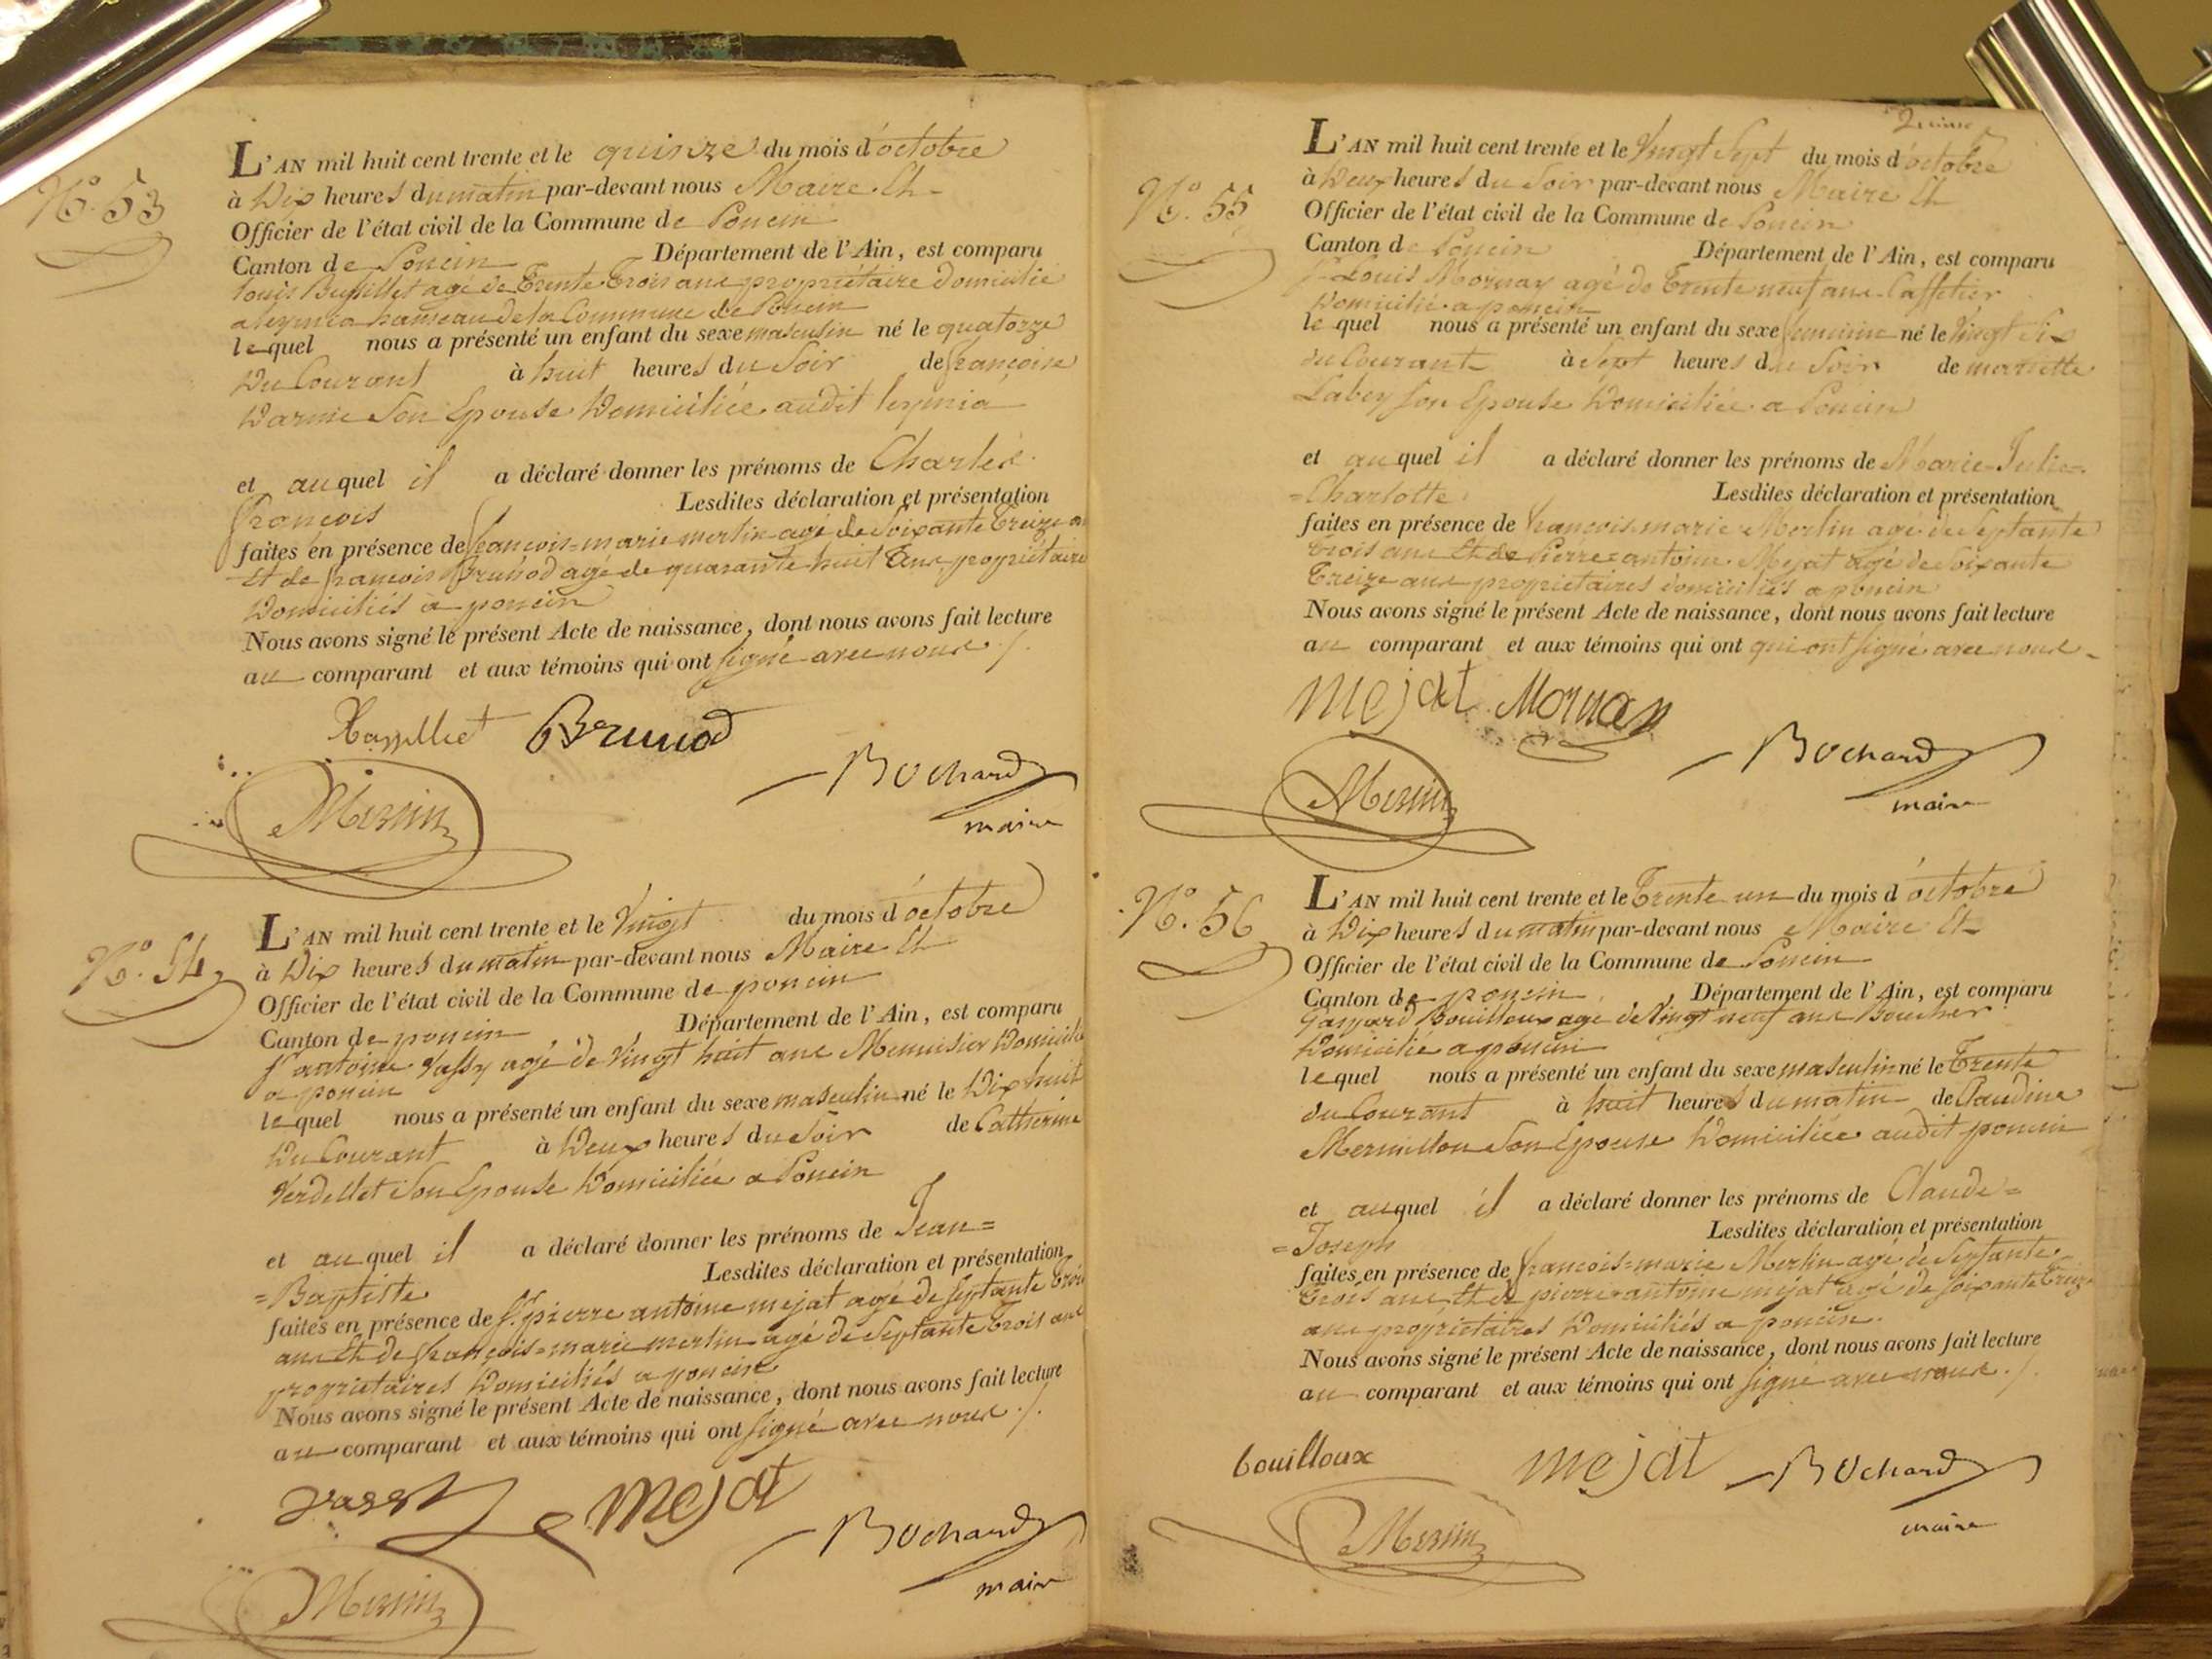 N.° 53
L'AN mil huit cent trente et le quinze du mois d'octobre
à Dix heures du matin par-devant nous Maire Et
Officier de l'état civil de la Commune de Poncin
Canton de Poncin Département de l'Ain, est comparu
Louis agé de Trente Trois ans propriétaire Domicilié
a leymia hameau de la Commune de Poncin
lequel nous a présenté un enfant du sexe masculin né le quatorze
Du Courant à huit heures du Soir de françoise
Darmè Son Epouse Domiciliée audit leymia
et auquel il a déclaré donner les prénoms de Charles
françois Lesdites déclaration et présentation
faites en présence de françois=marie merlin agé de Soixante Treize an
Et de françois Brunod agé de quarante huit Ans propriétaire
Domiciliés à poncin
Nous avons signé le présent Acte de naissance, dont nous avons fait lecture
au comparant et aux témoins qui ont signé avec nous ./.
Brunod
Bochard
maire
Merlin
N.° 54
L'AN mil huit cent trente et le Vingt du mois d'octobre
à Dix heures du matin par-devant nous Maire Et
Officier de l'état civil de la Commune de poncin
Canton de poncin Département de l'Ain, est comparu
Sr antoine Vassy agé de Vingt huit ans Menuisier Domicilié
a poncin
lequel nous a présenté un enfant du sexe masculin né le Dix huit
Du Courant à Deux heures du Soir de Catherine
Verdellet Son Epouse Domiciliée a Poncin
et auquel il a déclaré donner les prénoms de Jean=
=Baptiste Lesdites déclaration et présentation
faites en présence de Sr. pierre antoine mejat agé de Septante Trois
ans Et de françois=marie merlin agé de Septante Trois ans
propriétaires Domiciliés a poncin
Nous avons signé le présent Acte de naissance, dont nous avons fait lecture
au comparant et aux témoins qui ont signé avec nous ./.
Vassy mejat
Bochard
maire
Merlin
N.° 55
L'AN mil huit cent trente et le Vingt Sept du mois d'octobre
à Deux heures du Soir par-devant nous Maire Et
Officier de l'état civil de la Commune de Poncin
Canton de Poncin Département de l'Ain, est comparu
Sr Louis Mornay agé de Trente neuf ans Caffetier
Domicilié a poncin
lequel nous a présenté un enfant du sexe feminin né le Vingt Six
du Courant à Sept heures du Soir de mariette
Labey son Epouse Domiciliée a Poncin
et auquel il a déclaré donner les prénoms de Marie=Julie=
=Charlotte. Lesdites déclaration et présentation
faites en présence de françois=marie Merlin agé de Septante
Trois ans Et de Pierre=antoine Mejat agé de Soixante
Treize ans proprietaires domiciliés a poncin
Nous avons signé le présent Acte de naissance, dont nous avons fait lecture
au comparant et aux témoins qui ont qui ont signé avec nous
mejat Mornay
Bochard
maire
Merlin
N.° 56
L'AN mil huit cent trente et le Trente un du mois d'octobre
à Dix heures du matin par-devant nous Maire Et
Officier de l'état civil de la Commune de Poncin
Canton de poncin Département de l'Ain, est comparu
Gaspard Bouilloux agé de Vingt neuf ans Boucher
Domicilié a poncin
lequel nous a présenté un enfant du sexe masculin né le Trente
du Courant à huit heures du matin de Claudine
Mermillon Son Epouse Domiciliée audit poncin
et auquel il a déclaré donner les prénoms de Claude=
=Joseph Lesdites déclaration et présentation
faites en présence de françois=marie Merlin agé de Septante
Trois ans, Et de pierre=antoine mejat agé de Soixante Treize
ans proprietaires Domiciliés a poncin.
Nous avons signé le présent Acte de naissance, dont nous avons fait lecture
au comparant et aux témoins qui ont signé avec nous ./.
bouilloux mejat Bochard
maire
Merlin